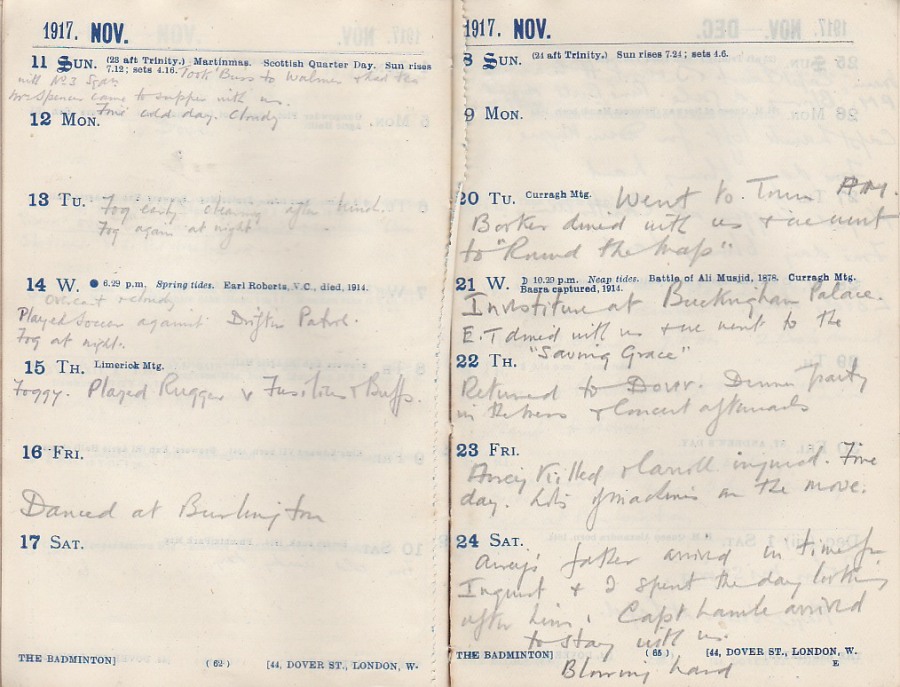 1917. NOV.
11 SUN. (23 aft Trinity.) Martinmas. Scottish Quarter Day. Sun rises
7.12; sets 4.16. Took Buss to Walmer & had tea
with No 3 Sqn.
Mr Spencer came to supper with us.
Fine cold day. Cloudy
12 MON.
13 TU. Fog early clearing after lunch.
Fog again at night
14 W. ● 6.29 p.m. Spring tides. Earl Roberts, V.C., died, 1914.
Overcast & cloudy
Played Soccer against Drifter Patrol.
Fog at night.
15 TH. Limerick Mtg.
Foggy. Played Rugger v Fusiliers & Buffs.
16 FRI.
Danced at Burlington
17 SAT.
THE BADMINTON] (62) [44, DOVER ST., LONDON, W.
1917. NOV.
8 SUN. (24 aft Trinity.) Sun rises 7.24; sets 4.6.
9 MON.
20 TU. Curragh Mtg. Went to Town AM.
Borker dined with us & we went
to "Round the Map"
21 W. D 10.29 p.m. Neap tides. Battle of Ali Musjid, 1878. Curragh Mtg.
Basra captured, 1914.
Investiture at Buckingham Palace.
E.T dined with us & we went to the
"Saving Grace"
22 TH.
Returned to Dover. Dinner Party
in the mess & Concert afterwards
23 FRI.
Killed & Carroll injured. Fine
day. Lots of machines on the move.
24 SAT.
father arrived in time for
Inquest & I spent the day looking
after him. Capt Lambe arrived
to stay with us.
THE BADMINTON] (65) [44, DOVER ST., LONDON, W.
E
Blowing hard